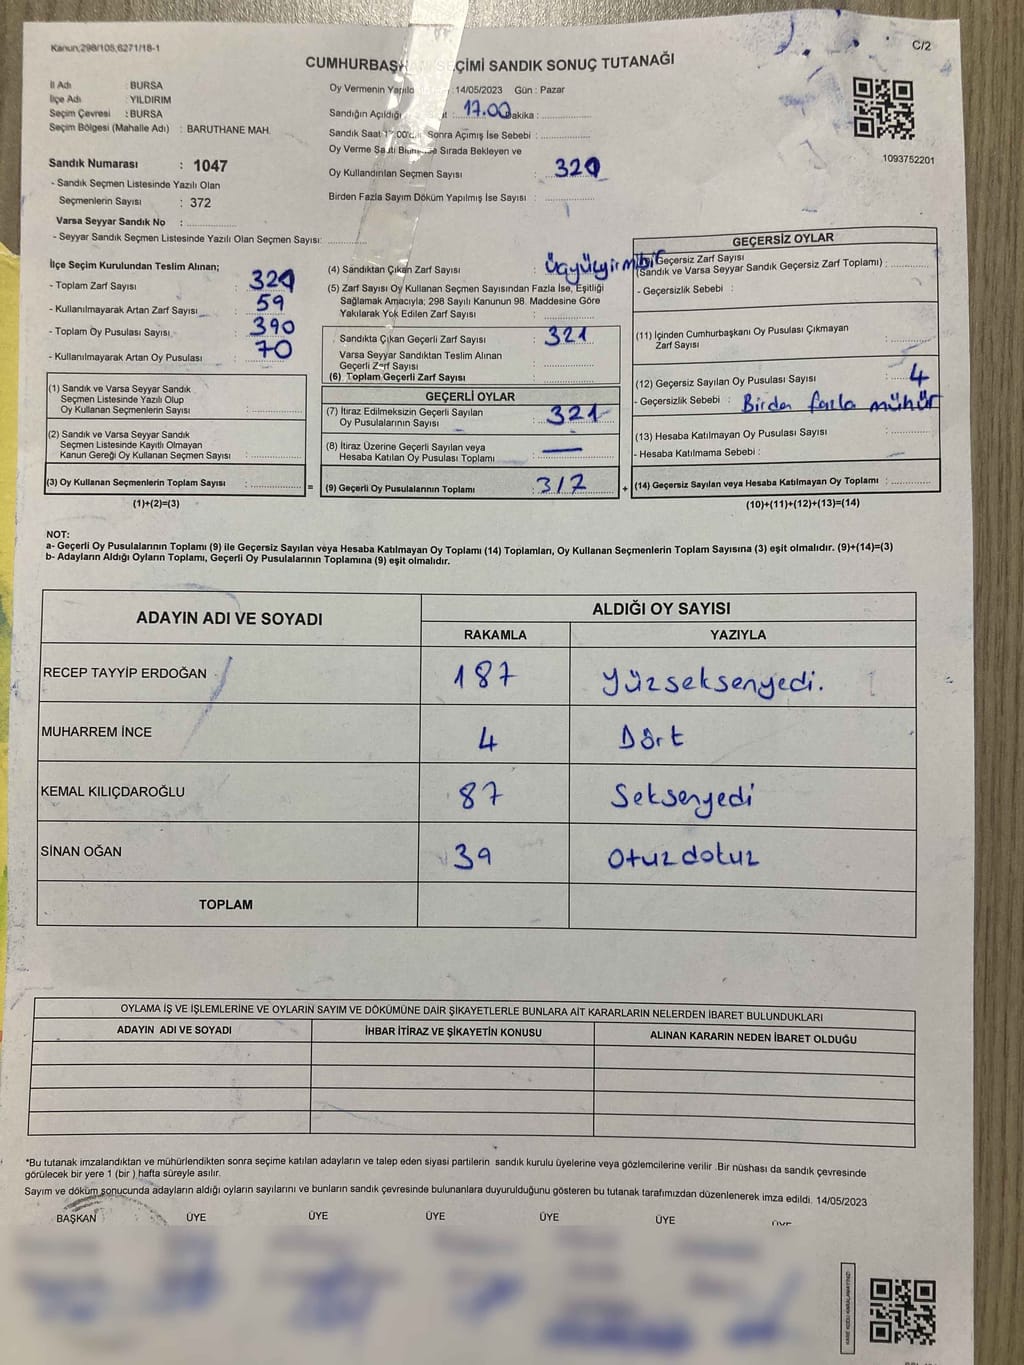 Kanun,298/105,6271/18-1
C/2
CUMHURBAŞ EÇİMİ SANDIK SONUÇ TUTANAĞI
İl Adı : BURSA
İlçe Adı : YILDIRIM
Seçim Çevresi : BURSA
Seçim Bölgesi (Mahalle Adı) : BARUTHANE MAH.
Oy Vermenin Yapıld 14/05/2023 Gün : Pazar
Sandığın Açıldığı t : 17.00 Dakika :
Sandık Saat 17:00'd Sonra Açımış İse Sebebi :
Oy Verme Saati Sırada Bekleyen ve
Oy Kullandırılan Seçmen Sayısı 321
Birden Fazla Sayım Döküm Yapılmış İse Sayısı :
1093752201
Sandık Numarası : 1047
- Sandık Seçmen Listesinde Yazılı Olan
Seçmenlerin Sayısı : 372
Varsa Seyyar Sandık No :
- Seyyar Sandık Seçmen Listesinde Yazılı Olan Seçmen Sayısı:
İlçe Seçim Kurulundan Teslim Alınan;
- Toplam Zarf Sayısı : 321
- Kullanılmayarak Artan Zarf Sayısı : 59
- Toplam Oy Pusulası Sayısı : 390
- Kullanılmayarak Artan Oy Pusulası : 70
(1) Sandık ve Varsa Seyyar Sandık
Seçmen Listesinde Yazılı Olup
Oy Kullanan Seçmenlerin Sayısı :
(2) Sandık ve Varsa Seyyar Sandık
Seçmen Listesinde Kayıtlı Olmayan
Kanun Gereği Oy Kullanan Seçmen Sayısı :
(3) Oy Kullanan Seçmenlerin Toplam Sayısı : =
(1)+(2)=(3)
(4) Sandıktan Çıkan Zarf Sayısı : üçyüzyirmibir
(5) Zarf Sayısı Oy Kullanan Seçmen Sayısından Fazla İse, Eşitliği
Sağlamak Amacıyla; 298 Sayılı Kanunun 98. Maddesine Göre
Yakılarak Yok Edilen Zarf Sayısı :
Sandıkta Çıkan Geçerli Zarf Sayısı : 321
Varsa Seyyar Sandıktan Teslim Alınan
Geçerli Zarf Sayısı :
(6) Toplam Geçerli Zarf Sayısı :
GEÇERLİ OYLAR
(7) İtiraz Edilmeksizin Geçerli Sayılan
Oy Pusulalarının Sayısı : 321
(8) İtiraz Üzerine Geçerli Sayılan veya
Hesaba Katılan Oy Pusulası Toplamı : —
(9) Geçerli Oy Pusulalarının Toplamı : 317 +
GEÇERSİZ OYLAR
Geçersiz Zarf Sayısı
(Sandık ve Varsa Seyyar Sandık Geçersiz Zarf Toplamı) :
- Geçersizlik Sebebi :
(11) İçinden Cumhurbaşkanı Oy Pusulası Çıkmayan
Zarf Sayısı :
(12) Geçersiz Sayılan Oy Pusulası Sayısı : 4
- Geçersizlik Sebebi : Birden fazla mühür
(13) Hesaba Katılmayan Oy Pusulası Sayısı :
- Hesaba Katılmama Sebebi :
(14) Geçersiz Sayılan veya Hesaba Katılmayan Oy Toplamı :
(10)+(11)+(12)+(13)=(14)
NOT:
a- Geçerli Oy Pusulalarının Toplamı (9) ile Geçersiz Sayılan veya Hesaba Katılmayan Oy Toplamı (14) Toplamları, Oy Kullanan Seçmenlerin Toplam Sayısına (3) eşit olmalıdır. (9)+(14)=(3)
b- Adayların Aldığı Oyların Toplamı, Geçerli Oy Pusulalarının Toplamına (9) eşit olmalıdır.
ADAYIN ADI VE SOYADI ALDIĞI OY SAYISI
RAKAMLA YAZIYLA
RECEP TAYYİP ERDOĞAN 187 Yüzseksenyedi.
MUHARREM İNCE 4 Dört
KEMAL KILIÇDAROĞLU 87 Seksenyedi
SİNAN OĞAN 39 Otuzdokuz
TOPLAM
OYLAMA İŞ VE İŞLEMLERİNE VE OYLARIN SAYIM VE DÖKÜMÜNE DAİR ŞİKAYETLERLE BUNLARA AİT KARARLARIN NELERDEN İBARET BULUNDUKLARI
ADAYIN ADI VE SOYADI İHBAR İTİRAZ VE ŞİKAYETİN KONUSU ALINAN KARARIN NEDEN İBARET OLDUĞU
*Bu tutanak imzalandıktan ve mühürlendikten sonra seçime katılan adayların ve talep eden siyasi partilerin sandık kurulu üyelerine veya gözlemcilerine verilir .Bir nüshası da sandık çevresinde
görülecek bir yere 1 (bir ) hafta süreyle asılır.
Sayım ve döküm sonucunda adayların aldığı oyların sayılarını ve bunların sandık çevresinde bulunanlara duyurulduğunu gösteren bu tutanak tarafımızdan düzenlenerek imza edildi. 14/05/2023
BAŞKAN ÜYE ÜYE ÜYE ÜYE ÜYE ÜYE